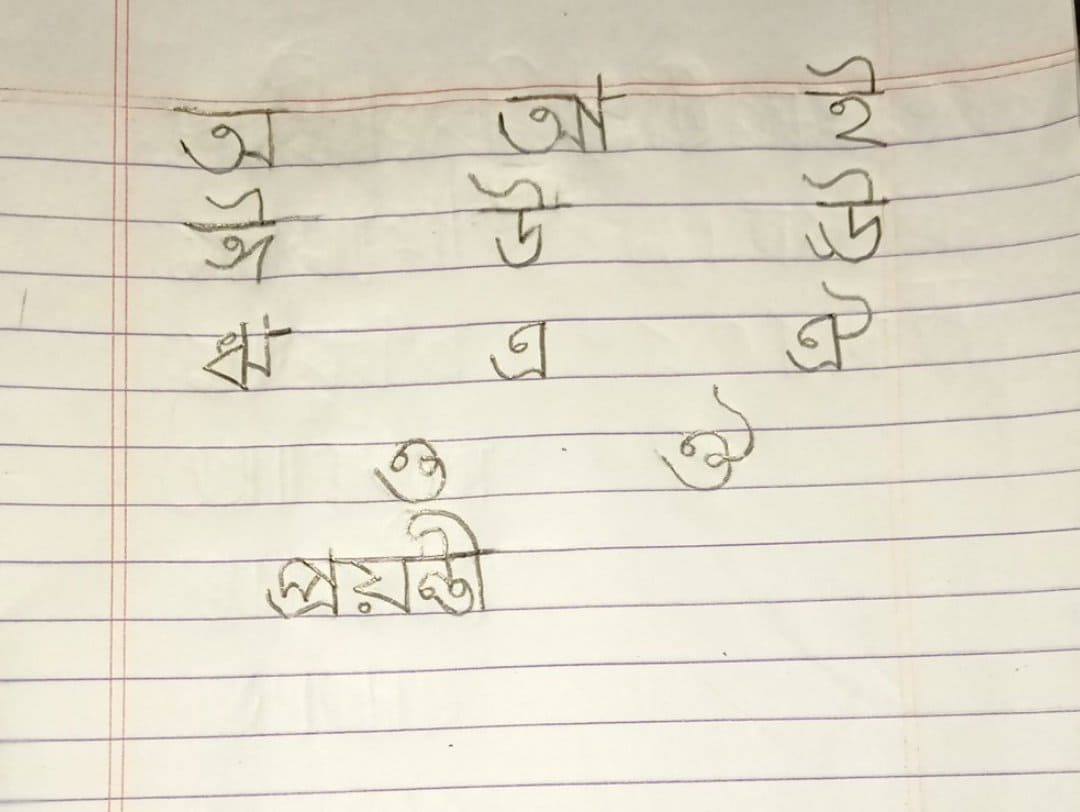 অ আ ই
ঈ উ ঊ
ঋ এ ঐ
ও ঔ
প্রয়ন্তী